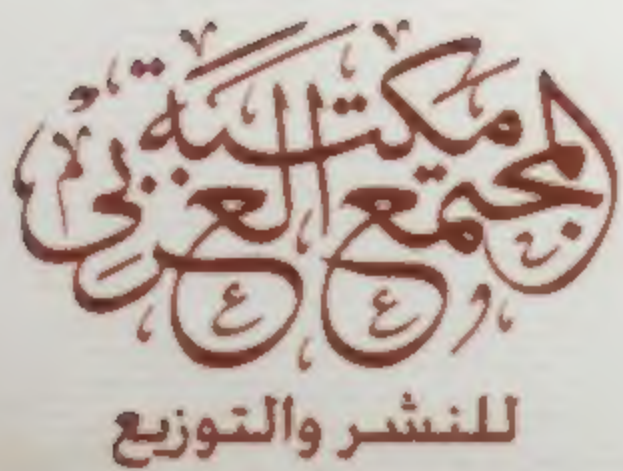 مكتبة
المجتمع العربي
للنشر والتوزيع